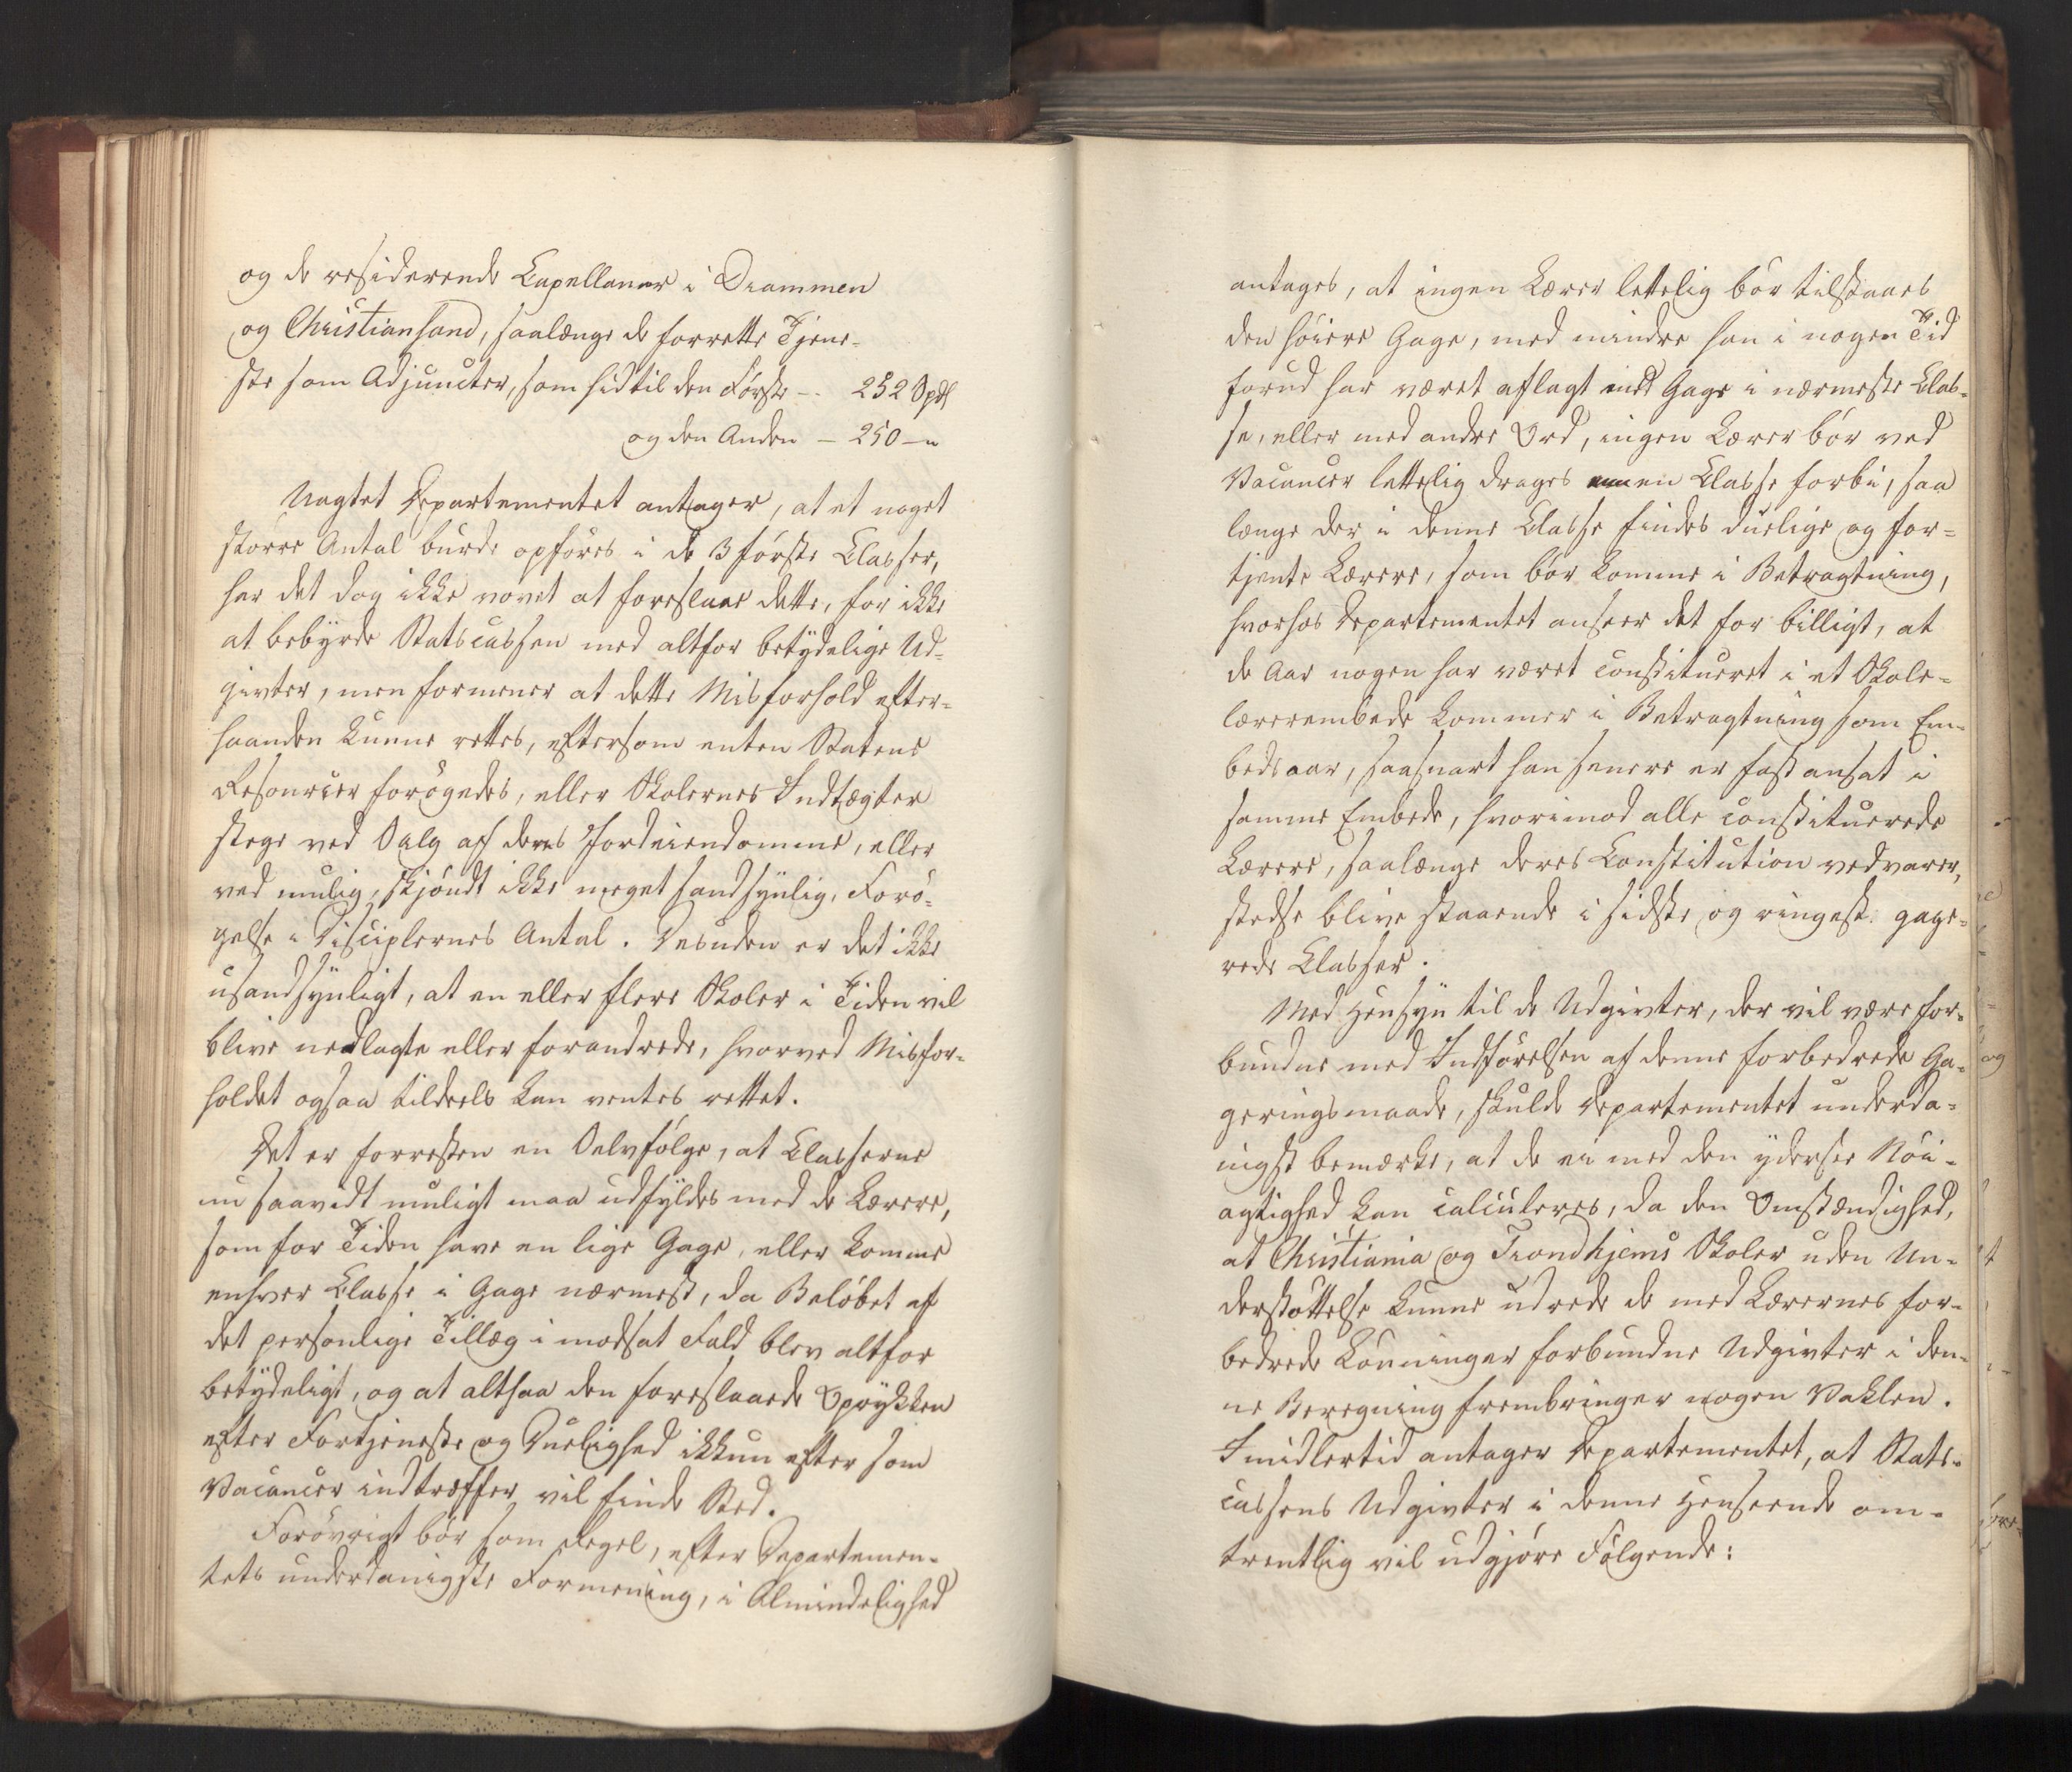 og de residerende Capellaner i Drammen
og Christiansand, saalænge de forrette Tjene-
ste som Adjuncter, som hidtil den Første -. 252 Spd
og den Anden - 250 - "
Uagtet Departementet antager, at et noget
større Antal burde opføres i de 3 første Classer,
har det dog ikke vovet at foreslaae dette, for ikke
at bebyrde Statscassen med altfor betydelige Ud-
givter, men formener at dette Misforhold efter-
haanden kunne rettes, eftersom enten Statens
Resourcer forøgedes, eller Skolernes Indtægter
stege ved Salg af deres Jordeiendomme, eller
ved mulig, skjøndt ikke meget sandsynlig, Forø-
gelse i Disciplernes Antal. Desuden er det ikke
usandsynligt, at en eller flere Skoler i Tiden vil
blive nedlagte eller forandrede, hvorved Misfor-
holdet ogsaa tildeels kan ventes rettet.
Det er forresten en Selvfølge, at Classerne
nu saavidt muligt maa udfyldes med de Lærere,
som for Tiden have en lige Gage, eller komme
enhver Classe i Gage nærmest, da Beløbet af
det personlige Tillæg i modsat Fald blev altfor
betydeligt, og at altsaa den foreslaaede Oprykken
efter Fortjeneste og Duelighed ikkun efter som
Vacancer indtræffer vil finde Sted.
Forøvrigt bør som Regel, efter Departemen-
tets underdanigste Formening, i Almindelighed
antages, at ingen Lærer lettelig bør tilstaaes
den høiere Gage, med mindre han i nogen Tid
forud har været aflagt med Gage i nærmeste Clas-
se, eller med andre Ord, ingen Lærer bør ved
Vacancer lettelig drages en Classe forbi, saa
længe der i denne Classe findes duelige og for-
tjente Lærere, som bør komme i Betragtning,
hvorhos Departementet anseer det for billigt, at
de Aar nogen har været constitueret i et Skole-
lærerembede kommer i Betragtning som Em-
bedsaar, saasnart han senere er fast ansat i
samme Embede, hvorimod alle constituerede
Lærere, saalænge deres Constitution vedvarer,
stedse blive staaende i sidste og ringest gage-
rede Classer.
Med Hensyn til de Udgivter, der vil være for-
bundne med Indførelsen af denne forbedrede Ga-
geringsmaade, skulde Departementet underda-
nigst bemærke, at de ei med den yderste Nøi-
agtighed kan calculeres, da den Omstændighed,
at Christiania og Trondhjems Skoler uden Un-
derstøttelse kunne udrede de med Lærernes for-
bedrede Lønninger forbundne Udgivter i den-
ne Beregning frembringer nogen Vaklen.
Imidlertid antager Departementet, at Stats-
cassens Udgivter i denne Henseende om-
trentlig vil udgjøre Følgende: